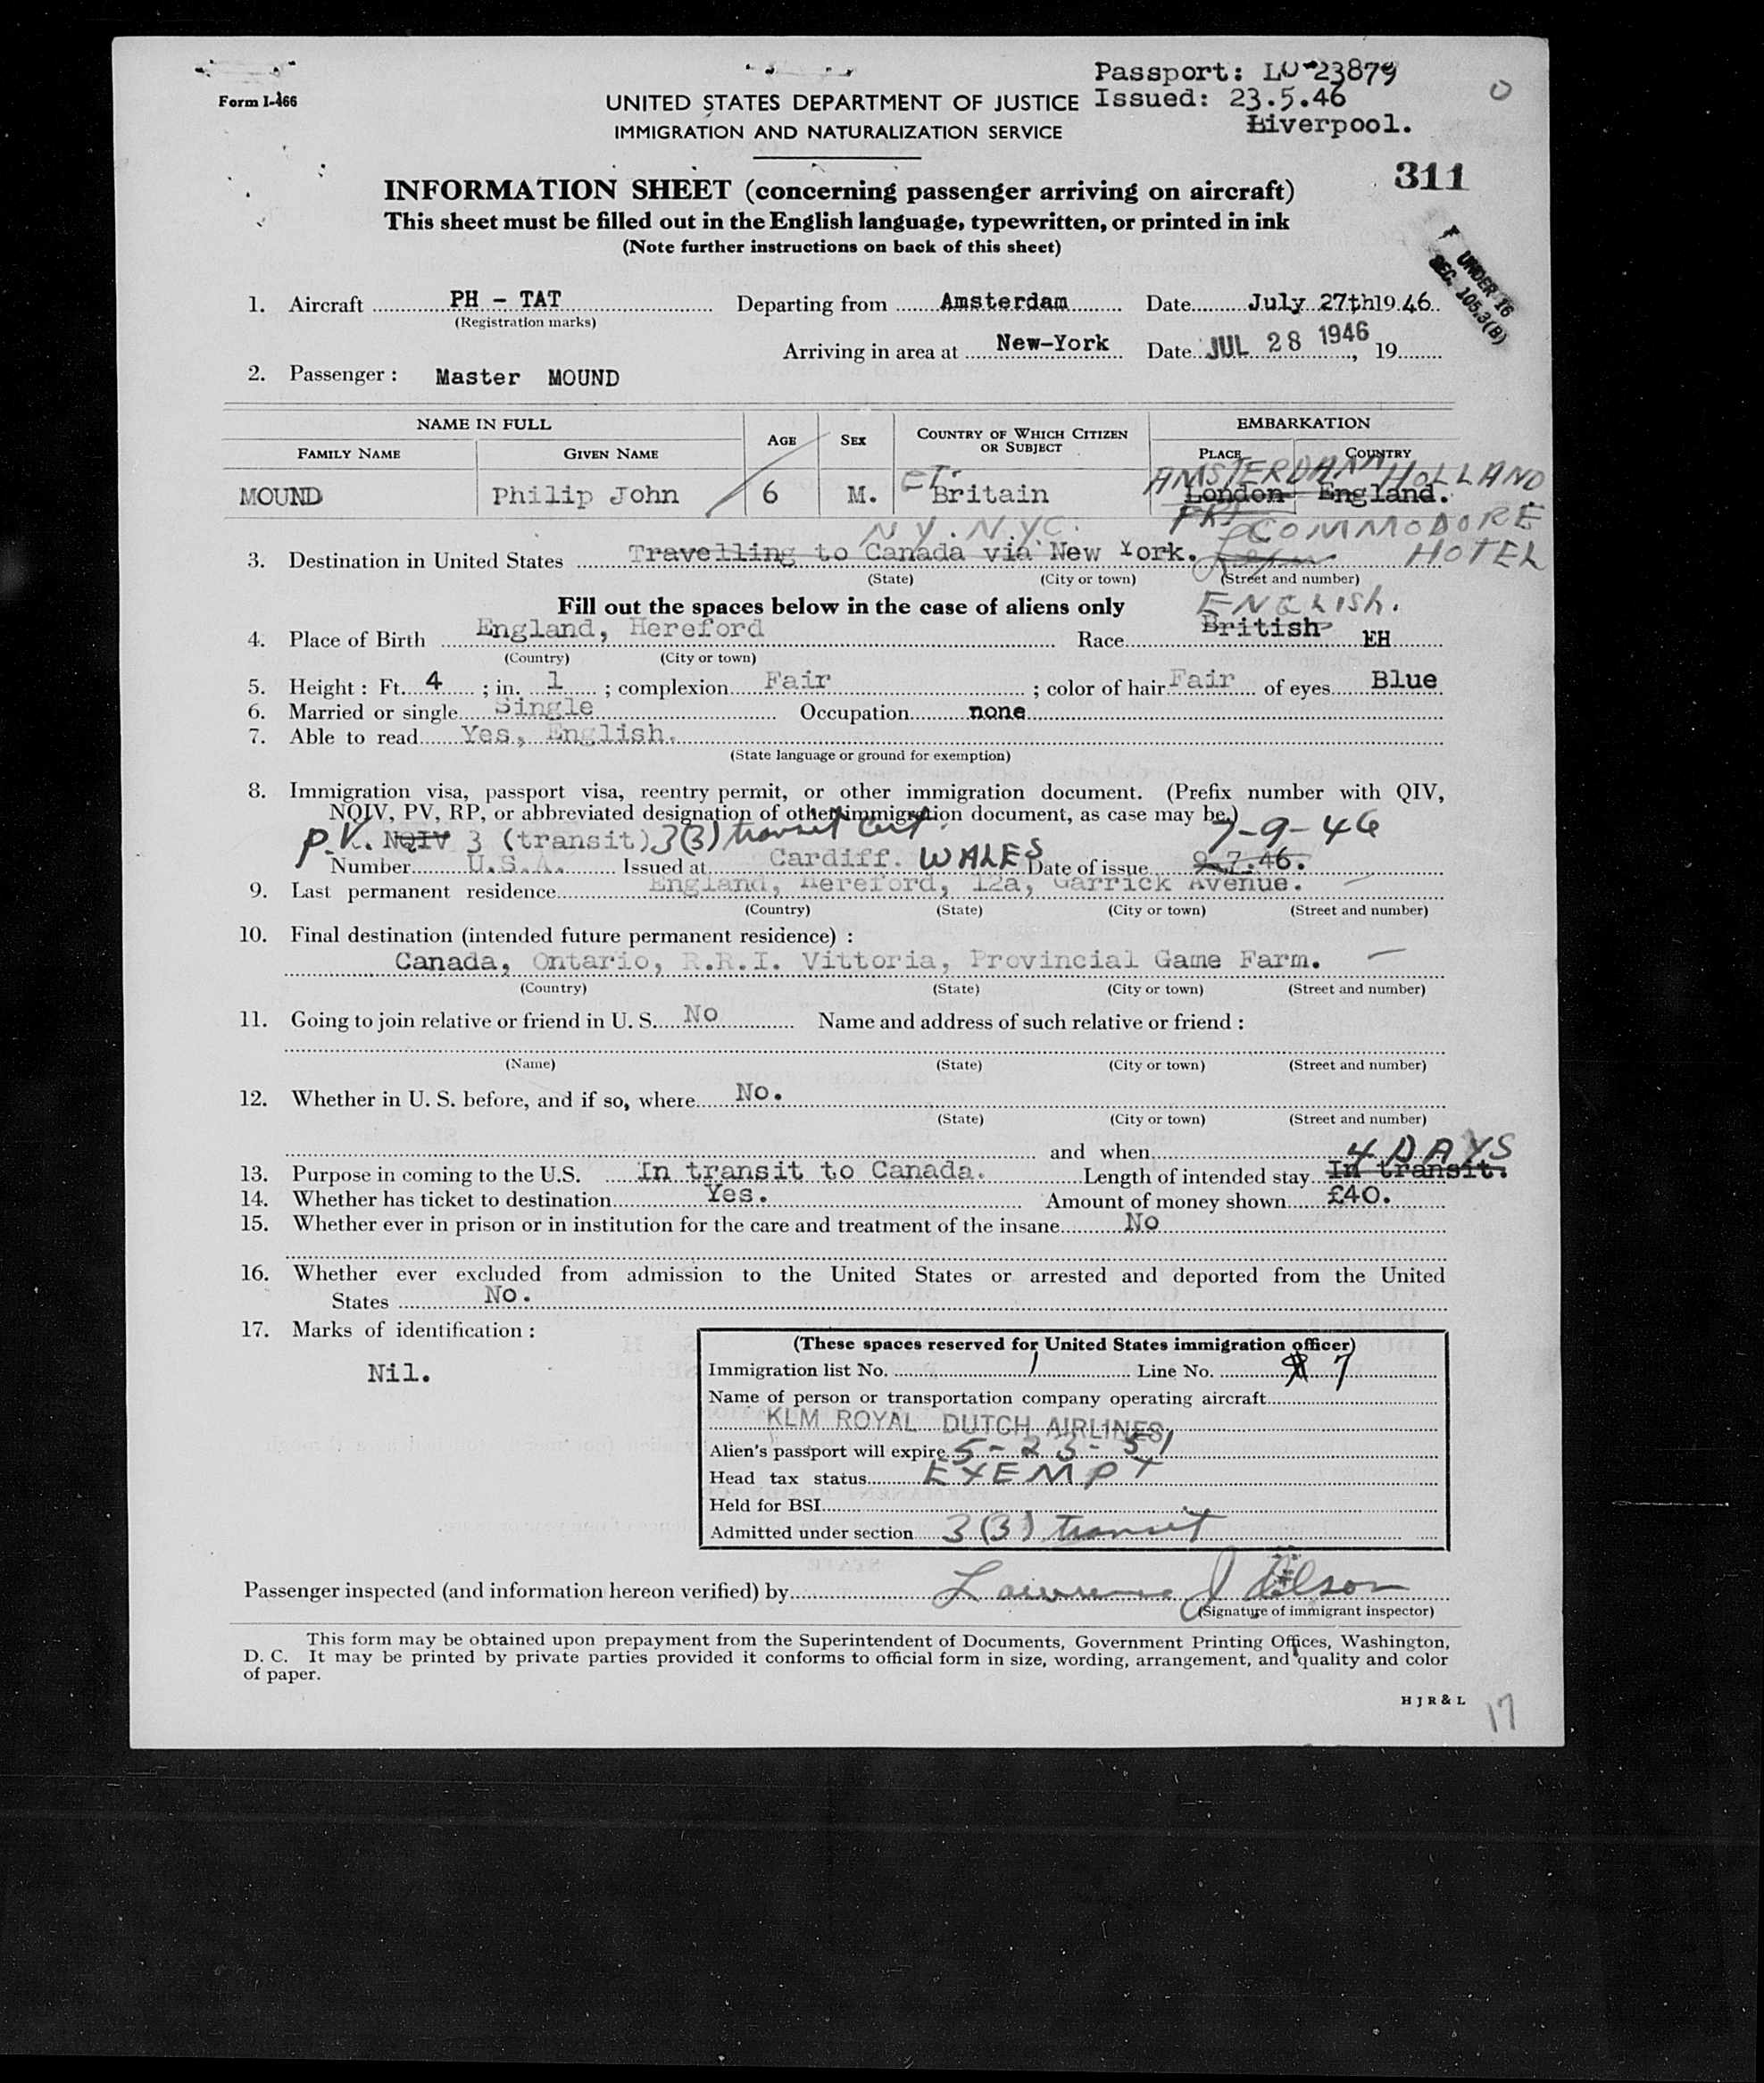 Passport: LO-23879
Form I-466
UNITED STATES DEPARTMENT OF JUSTICE Issued: 23.5.46
IMMIGRATION AND NATURALIZATION SERVICE Liverpool.
0
311
INFORMATION SHEET (concerning passenger arriving on aircraft)
This sheet must be filled out in the English language, typewritten, or printed in ink
(Note further instructions on back of this sheet)
UNDER 16
SEC. 105.3(B)
1. Aircraft PH - TAT Departing from Amsterdam Date July 27th 19 46
(Registration marks)
Arriving in area at New-York Date JUL 28 1946, 19
2. Passenger: Master MOUND
NAME IN FULL AGE SEX COUNTRY OF WHICH CITIZEN OR SUBJECT EMBARKATION
FAMILY NAME GIVEN NAME PLACE COUNTRY
GT. AMSTERDAM HOLLAND
MOUND Philip John 6 M. Britain London England.
N.Y. N.Y.C. COMMODORE
3. Destination in United States Travelling to Canada via New York. HOTEL
(State) (City or town) (Street and number)
Fill out the spaces below in the case of aliens only ENGLISH.
4. Place of Birth England, Hereford Race British EH
(Country) (City or town)
5. Height: Ft. 4; in. 1; complexion Fair; color of hair Fair of eyes Blue
6. Married or single Single Occupation none
7. Able to read Yes, English.
(State language or ground for exemption)
8. Immigration visa, passport visa, reentry permit, or other immigration document. (Prefix number with QIV,
NQIV, PV, RP, or abbreviated designation of other immigration document, as case may be.)
P.V. NQIV 3 (transit) 3(3) transit cert. 7-9-46
Number U.S.A. Issued at Cardiff. WALES Date of issue 9.7.46.
9. Last permanent residence England, Hereford, 12a, Garrick Avenue.
(Country) (State) (City or town) (Street and number)
10. Final destination (intended future permanent residence):
Canada, Ontario, R.R.I. Vittoria, Provincial Game Farm.
(Country) (State) (City or town) (Street and number)
11. Going to join relative or friend in U. S. No Name and address of such relative or friend:
(Name) (State) (City or town) (Street and number)
12. Whether in U. S. before, and if so, where No.
(State) (City or town) (Street and number)
and when
4 DAYS
13. Purpose in coming to the U.S. In transit to Canada. Length of intended stay In transit.
14. Whether has ticket to destination Yes. Amount of money shown £40.
15. Whether ever in prison or in institution for the care and treatment of the insane No
16. Whether ever excluded from admission to the United States or arrested and deported from the United
States No.
17. Marks of identification:
Nil.
(These spaces reserved for United States immigration officer)
Immigration list No. 1 Line No. 7
Name of person or transportation company operating aircraft
KLM ROYAL DUTCH AIRLINES
Alien's passport will expire 5-23-51
Head tax status EXEMPT
Held for BSI
Admitted under section 3(3) transit
Passenger inspected (and information hereon verified) by Lawrence J
(Signature of immigrant inspector)
This form may be obtained upon prepayment from the Superintendent of Documents, Government Printing Offices, Washington,
D. C. It may be printed by private parties provided it conforms to official form in size, wording, arrangement, and quality and color
of paper.
H J R & L
17